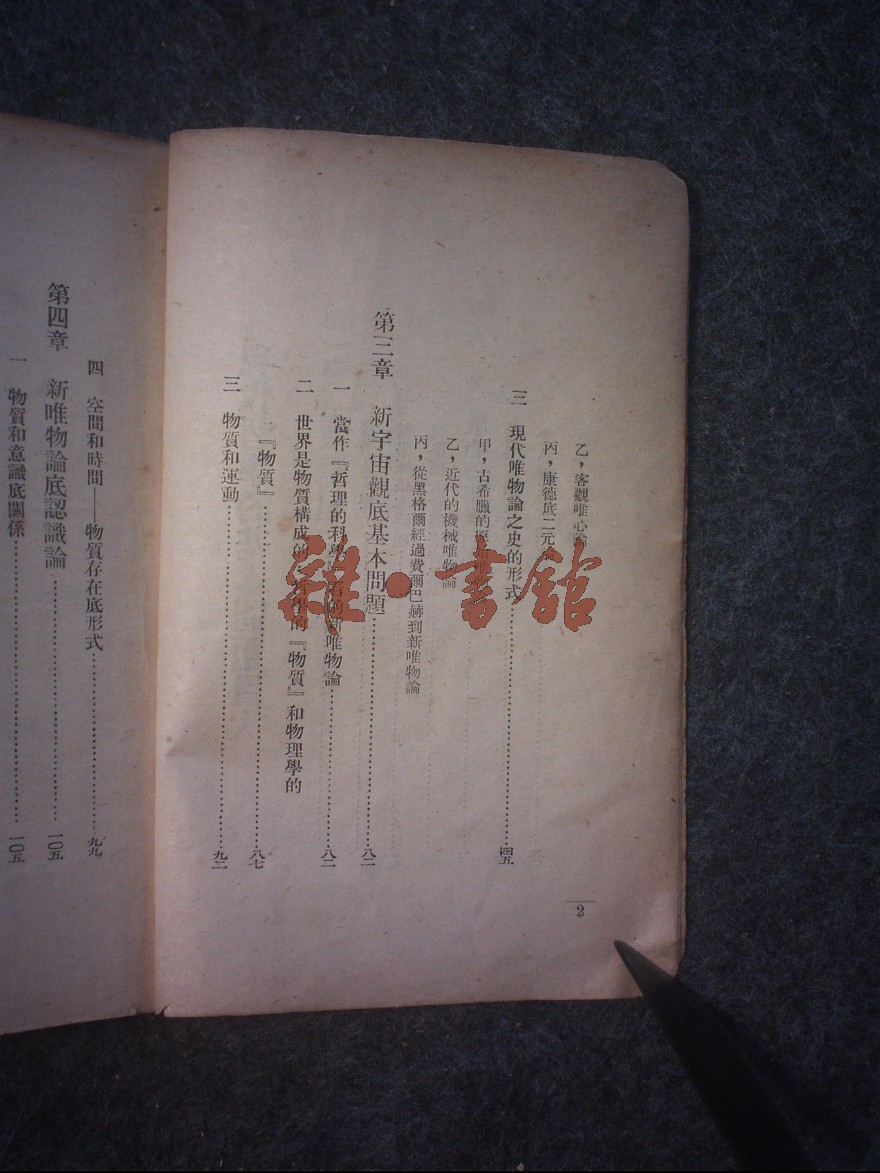 乙，客觀唯心論
丙，康德底二元論
三　現代唯物論之史的形式……45
甲，古希臘的原始唯物論
乙，近代的機械唯物論
丙，從黑格爾經過費爾巴赫到新唯物論
第三章　新宇宙觀底基本問題……八二
一　當作『哲理的科學』看的新唯物論……八二
二　世界是物質構成的　哲學的『物質』和物理學的
『物質』……八七
三　物質和運動……九二
2
四　空間和時間——物質存在底形式……九九
第四章　新唯物論底認識論……一〇五
一　物質和意識底關係……一〇五
雜·書館